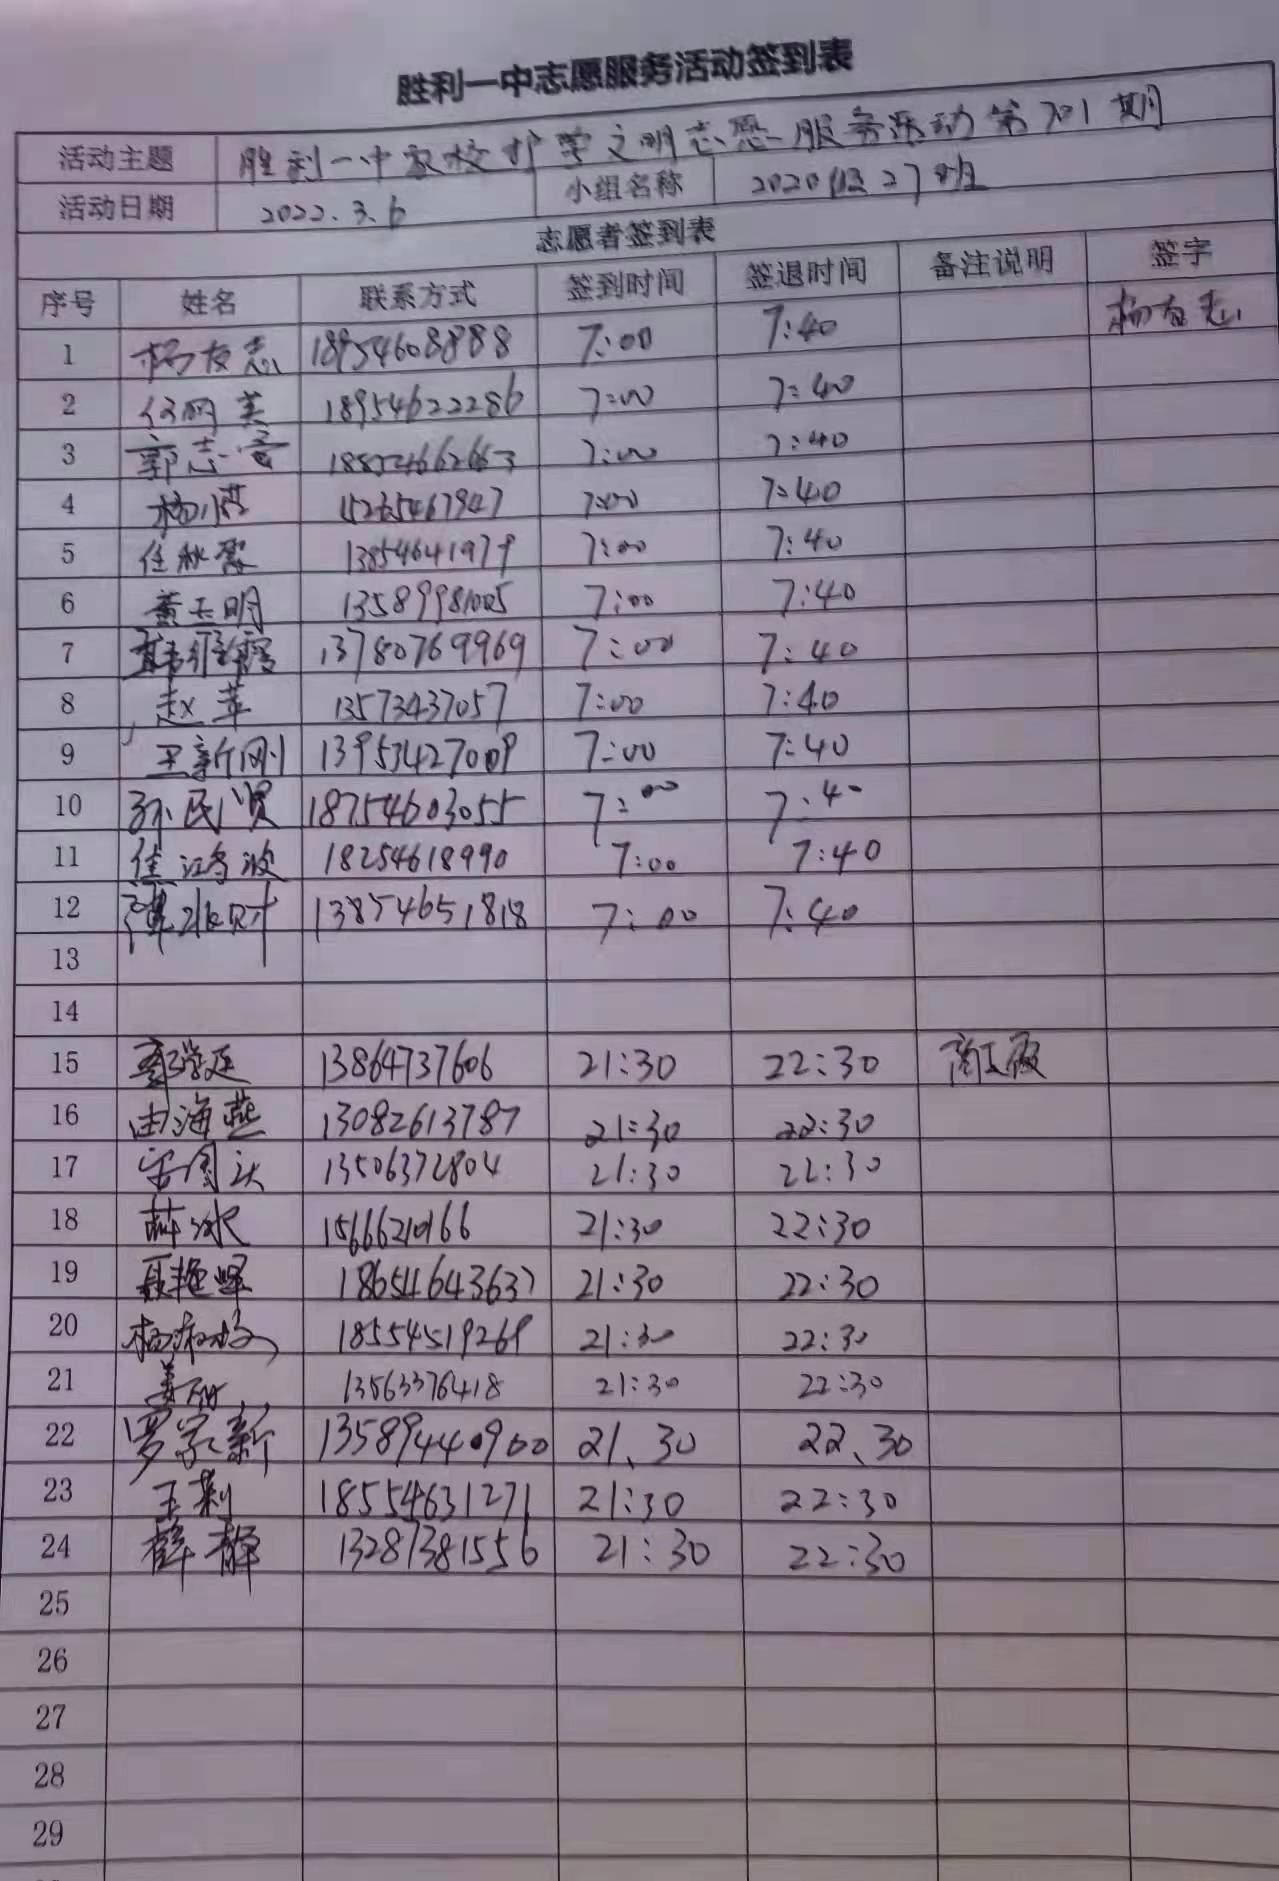 胜利一中志愿服务活动签到表
活动主题 胜利一中家校护学文明志愿服务活动第701期
活动日期 2022.3.6 小组名称 2020级27班
志愿者签到表
序号 姓名 联系方式 签到时间 签退时间 备注说明 签字
1 杨友志 18954608888 7:00 7:40 杨友志
2 18954622286 7:00 7:40
3 郭志 7:00 7:40
4 杨小燕 15265467947 7:00 7:40
5 任秋霞 13854641979 7:00 7:40
6 黄玉明 13589981005 7:00 7:40
7 韩雅霞 13780769969 7:00 7:40
8 赵苹 13573437057 7:00 7:40
9 王新刚 13953427009 7:00 7:40
10 孙民贤 18754603055 7:00 7:40
11 18254618990 7:00 7:40
12 13854651818 7:00 7:40
13
14
15 13864737606 21:30 22:30
16 由海燕 13082613787 21:30 22:30
17 13506372804 21:30 22:30
18 薛冰 15666210166 21:30 22:30
19 聂艳辉 18654643637 21:30 22:30
20 18554519269 21:30 22:30
21 13563376418 21:30 22:30
22 罗家新 13589440900 21、30 22、30
23 王利 18554631271 21:30 22:30
24 薛静 13287381556 21:30 22:30
25
26
27
28
29